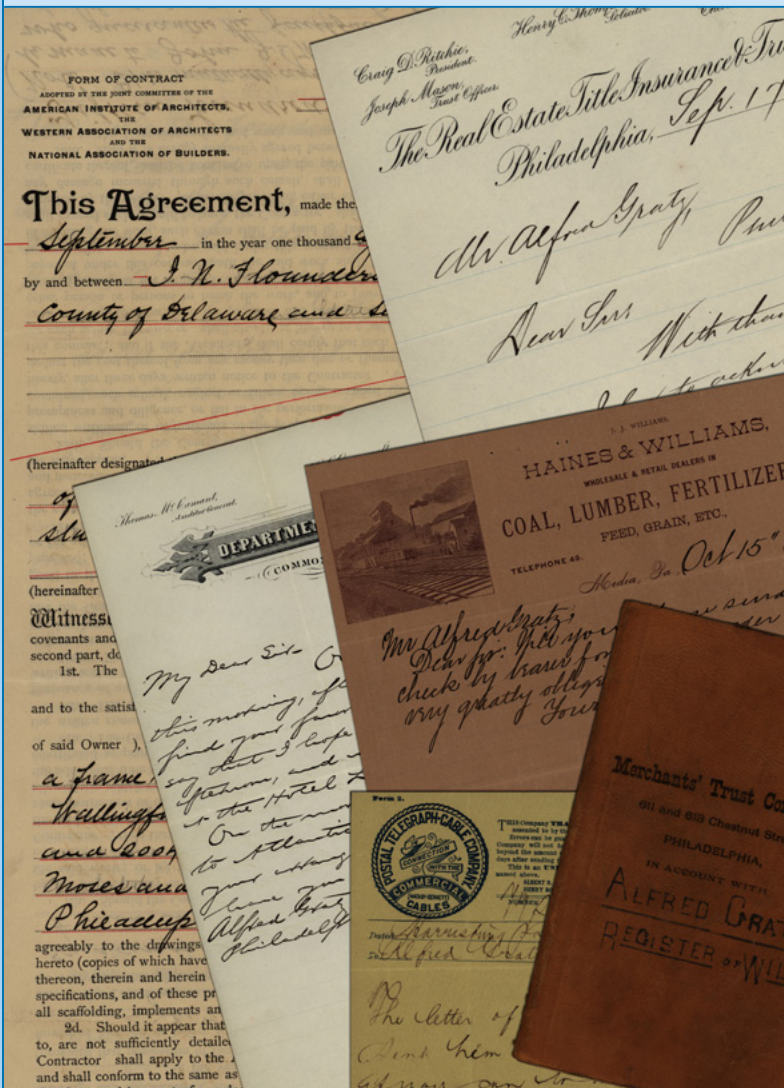 FORM OF CONTRACT
ADOPTED BY THE JOINT COMMITTEE OF THE
AMERICAN INSTITUTE OF ARCHITECTS,
THE
WESTERN ASSOCIATION OF ARCHITECTS
AND THE
NATIONAL ASSOCIATION OF BUILDERS.
This Agreement, made the
September in the year one thousand
by and between I. N. Flounders
County of Delaware and
(hereinafter designated
of
(hereinafter
Witness
covenants and
second part, do
1st. The
and to the satis
of said Owner ),
a frame
Wallingf
and 200
Moses and
Philadelp
agreeably to the drawings
hereto (copies of which have
thereon, therein and herein
specifications, and of these pr
all scaffolding, implements an
2d. Should it appear that
to, are not sufficiently detailed
Contractor shall apply to the
and shall conform to the same as
Craig D. Ritchie,
President.
Joseph Mason,
Trust Officer.
Henry C. Thom
Solicitor
The Real Estate Title Insurance & Tru
Philadelphia, Sep. 17
Mr. Alfred Gratz,
Dear Sir:
With than
Thomas McCamant,
Auditor General.
DEPARTMEN
COMMO
My Dear Sir-
this morning, af
find your favor
say that I hope
afternoon, and
at the Hotel
On the mor
to Atlantic
your
have you
Alfred Gratz
Philadelph
J. J. WILLIAMS.
HAINES & WILLIAMS,
WHOLESALE & RETAIL DEALERS IN
COAL, LUMBER, FERTILIZER
FEED, GRAIN, ETC.,
TELEPHONE 49.
Media, Pa. Oct 15"
Mr Alfred Gratz;
Dear Sir: Will you please send
check by bearer for
very greatly oblige
Your
Form 2.
POSTAL TELEGRAPH-CABLE COMPANY
CONNECTION
WITH THE
(MACKAY-BENNETT)
COMMERCIAL
CABLES
THIS Company TRA
assented to by th
Errors can be gua
Company will not h
beyond the amount
days after sending t
This is an UN
named above.
ALBERT B.
NUMBER
Dated Harrisburg
To Alfred Grat
The letter of
Sent him
Merchants' Trust Co
611 and 613 Chestnut Stre
PHILADELPHIA,
IN ACCOUNT WITH
ALFRED GRAT
REGISTER OF WIL